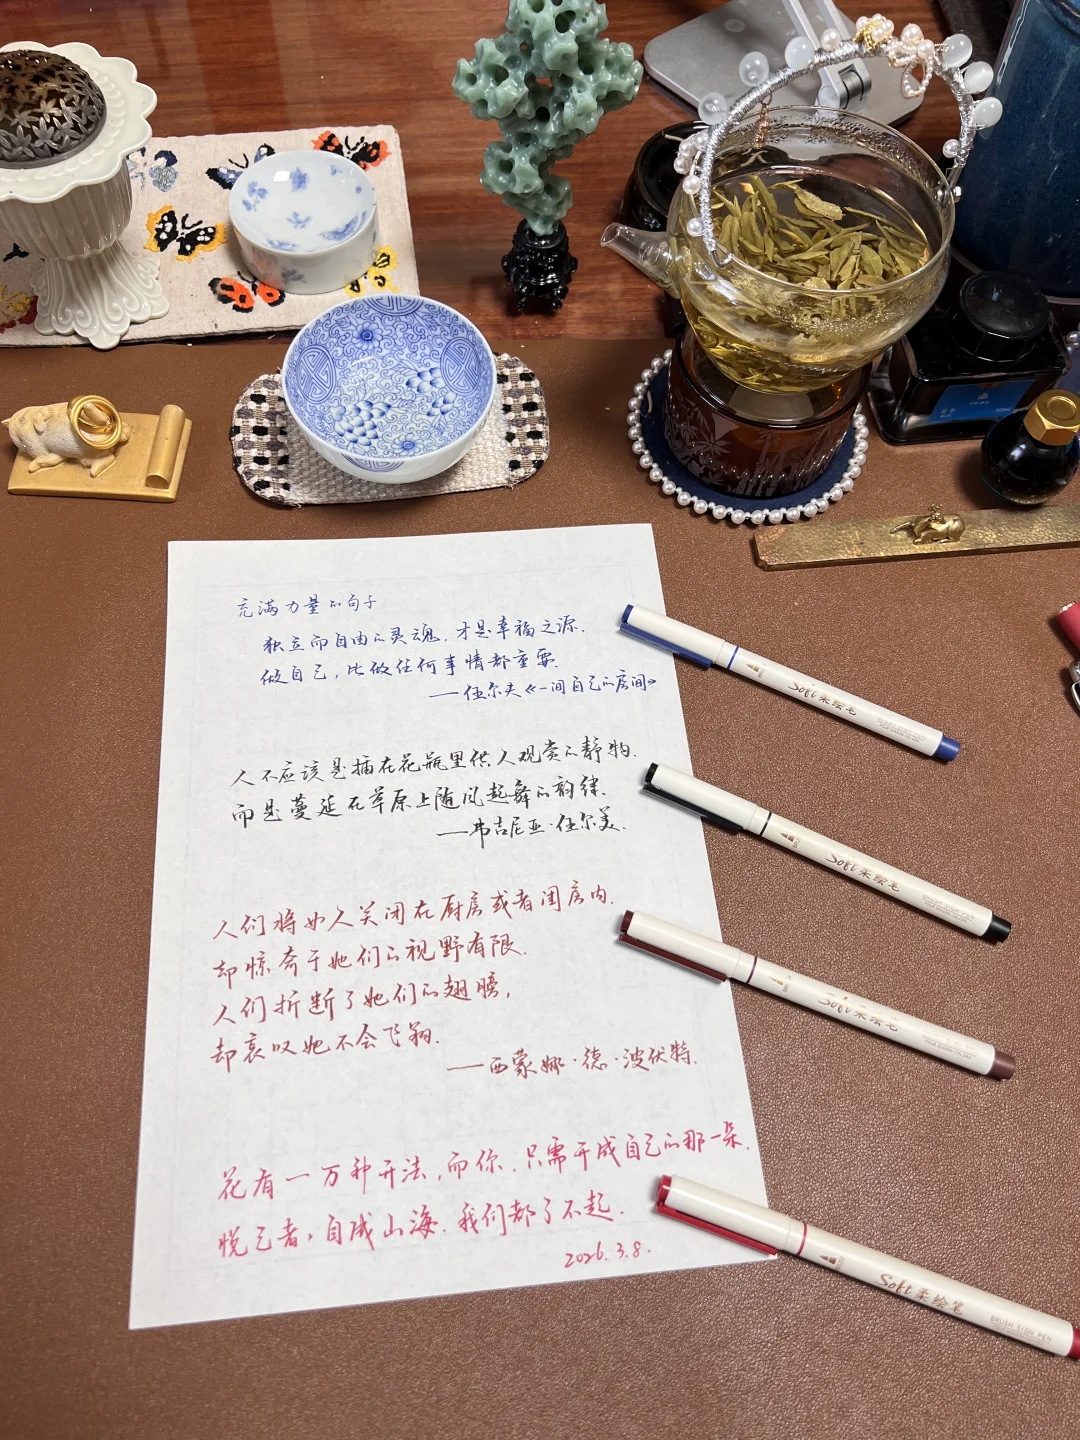 充满力量的句子
独立而自由的灵魂，才是幸福之源.
做自己，比做任何事情都重要.
——伍尔夫《一间自己的房间》
人不应该是插在花瓶里供人观赏的静物.
而是蔓延在草原上随风起舞的韵律.
——弗吉尼亚·伍尔芙.
人们将女人关闭在厨房或者闺房内.
却惊奇于她们的视野有限.
人们折断了她们的翅膀，
却哀叹她不会飞翔.
——西蒙娜·德·波伏特.
花有一万种开法，而你，只需开成自己的那一朵.
悦己者，自成山海.我们都了不起.
2026.3.8.
Soft 柔绘笔
Soft 柔绘笔
Soft 柔绘笔
Soft 柔绘笔
BRUSH SIGN PEN